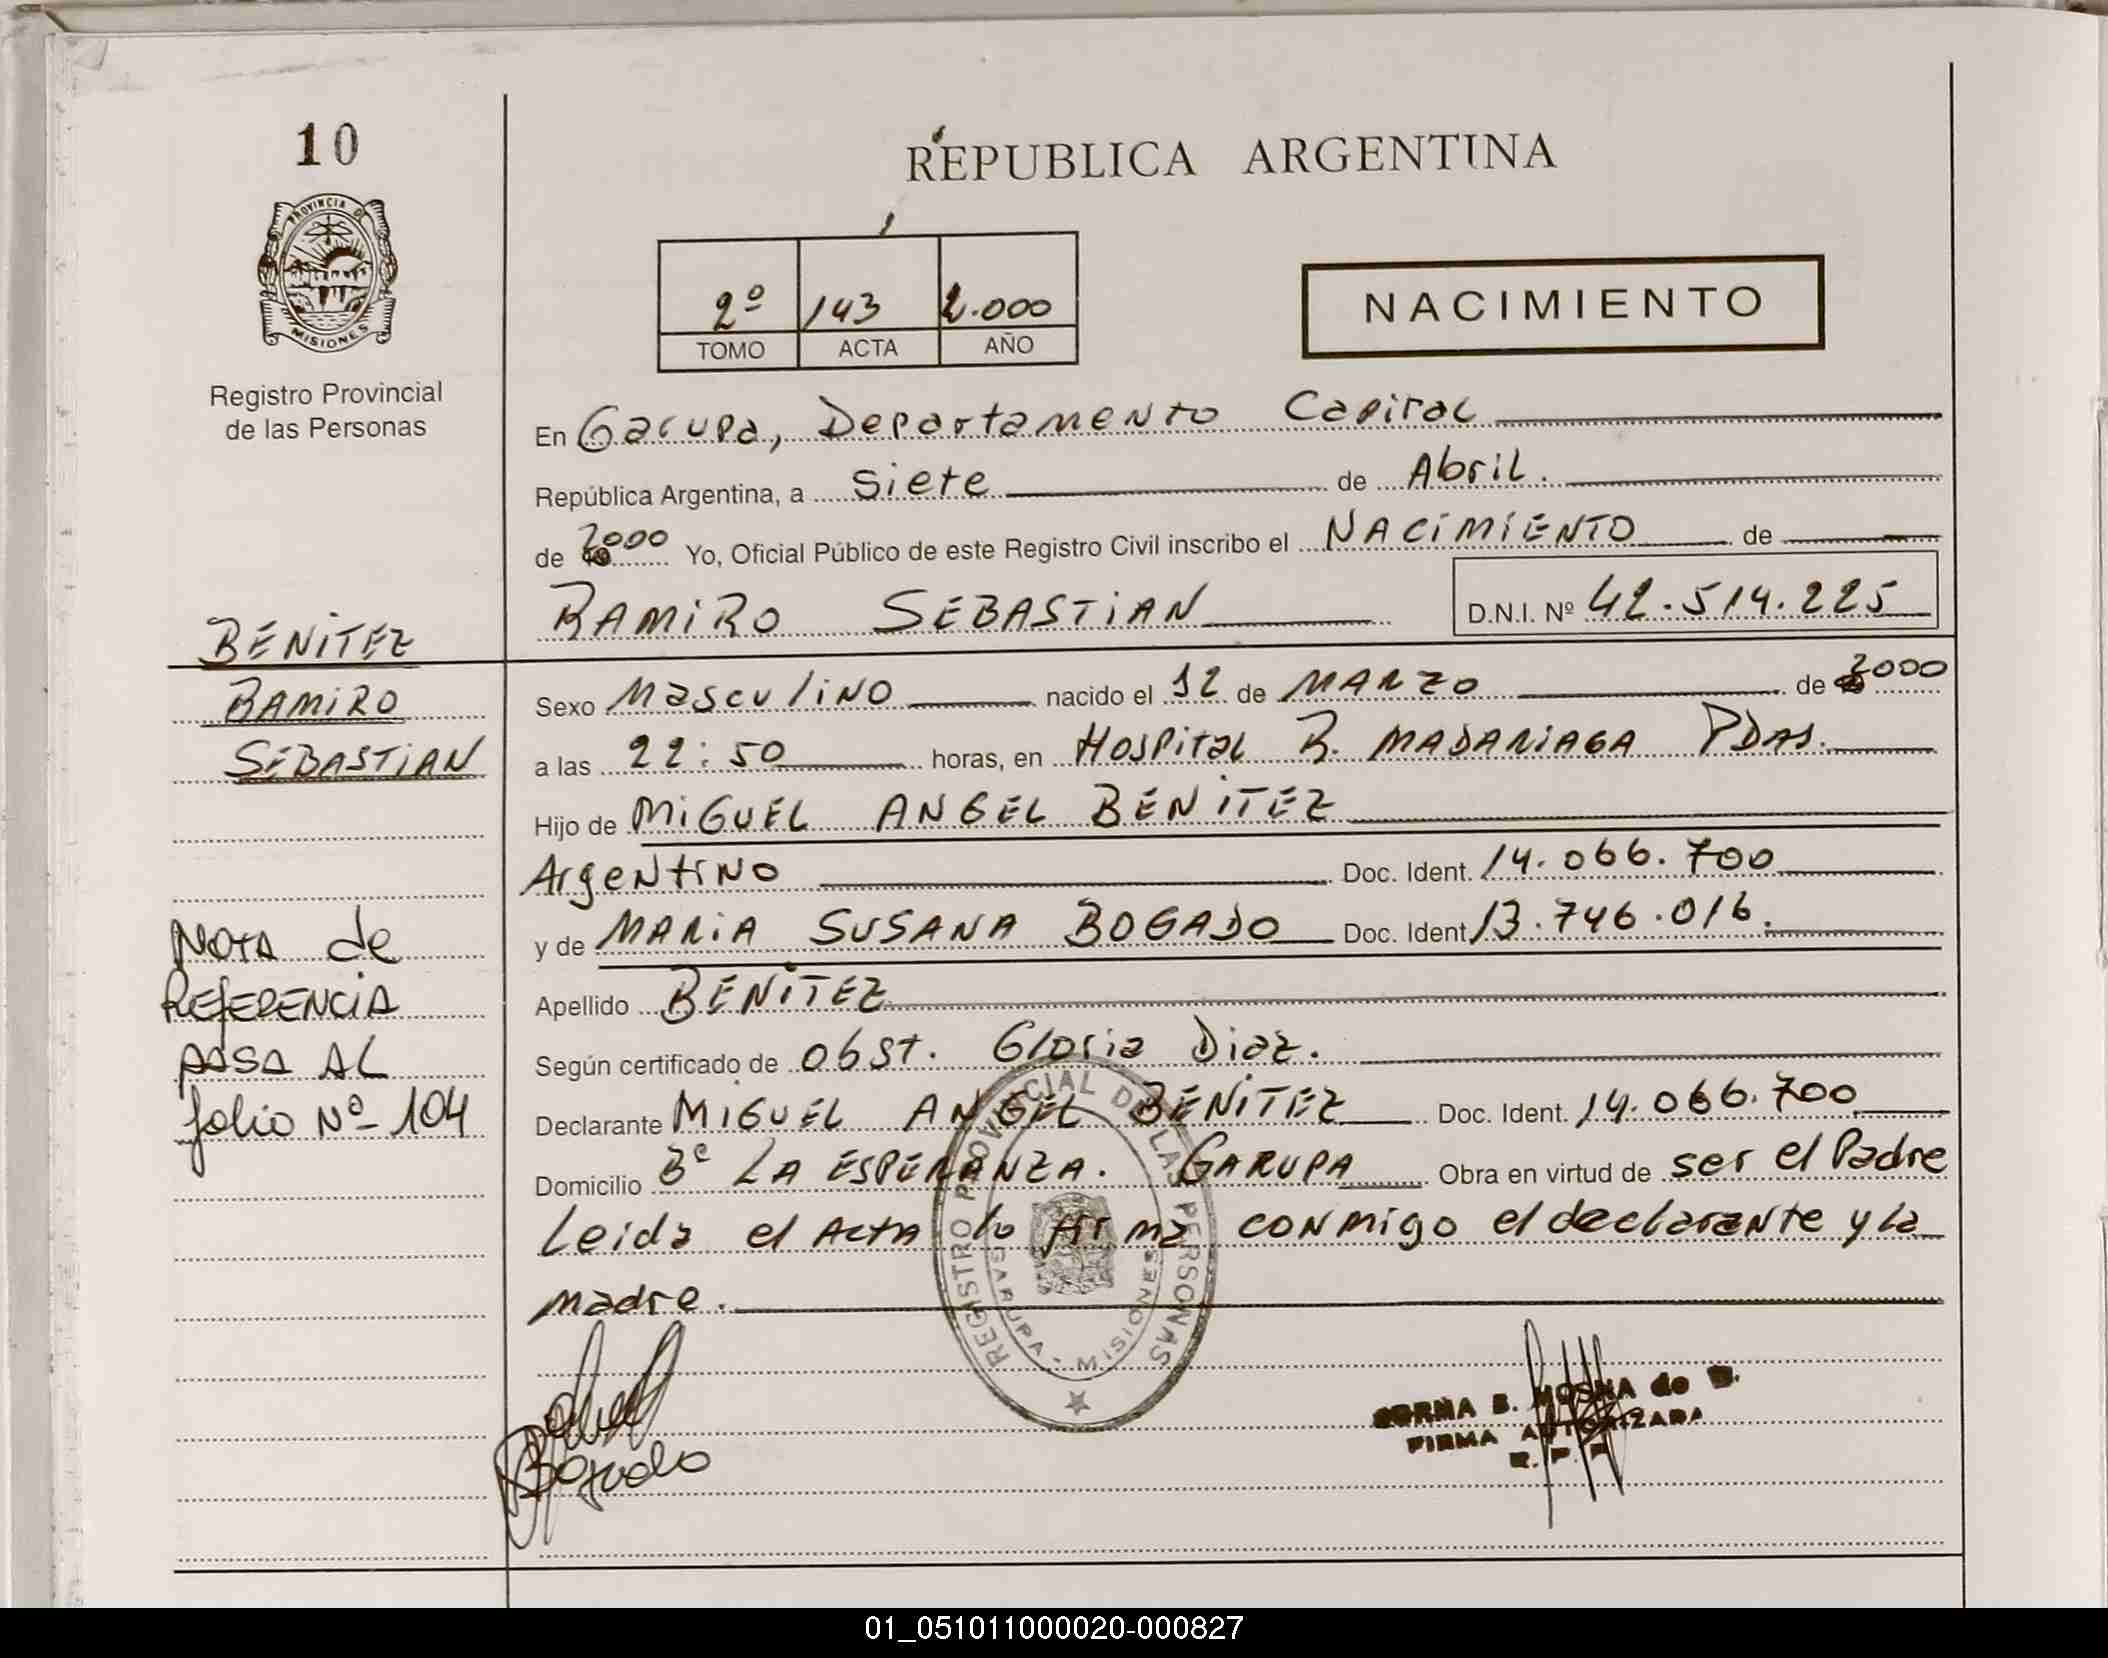 10
REPUBLICA ARGENTINA
PROVINCIA DE MISIONES
Registro Provincial
de las Personas
2º 143 2.000
TOMO ACTA AÑO
NACIMIENTO
En Garupa, Departamento Capital
República Argentina, a siete de Abril.
de 2000 Yo, Oficial Público de este Registro Civil inscribo el NACIMIENTO de
RAMIRO SEBASTIAN D.N.I. Nº 42.514.225
BENITEZ
RAMIRO
SEBASTIAN
Sexo Masculino nacido el 12 de MARZO de 2000
a las 22:50 horas, en Hospital R. MADARIAGA PDAS.
Hijo de MIGUEL ANGEL BENITEZ
Argentino Doc. Ident. 14.066.700
y de MARIA SUSANA BOGADO Doc. Ident. 13.746.016.
Apellido BENITEZ
Según certificado de obst. Gloria Diaz.
Declarante MIGUEL ANGEL BENITEZ Doc. Ident. 14.066.700
Domicilio Bº LA ESPERANZA. GARUPA Obra en virtud de ser el Padre
Leida el Acta lo firma conmigo el declarante y la
madre.
NOTA de
REFERENCIA
PASA AL
folio Nº- 104
REGISTRO PROVINCIAL DE LAS PERSONAS
GARUPA - MISIONES
Bogado
MOSNA de B.
FIRMA AUTORIZADA
R. P. P.
01_051011000020-000827